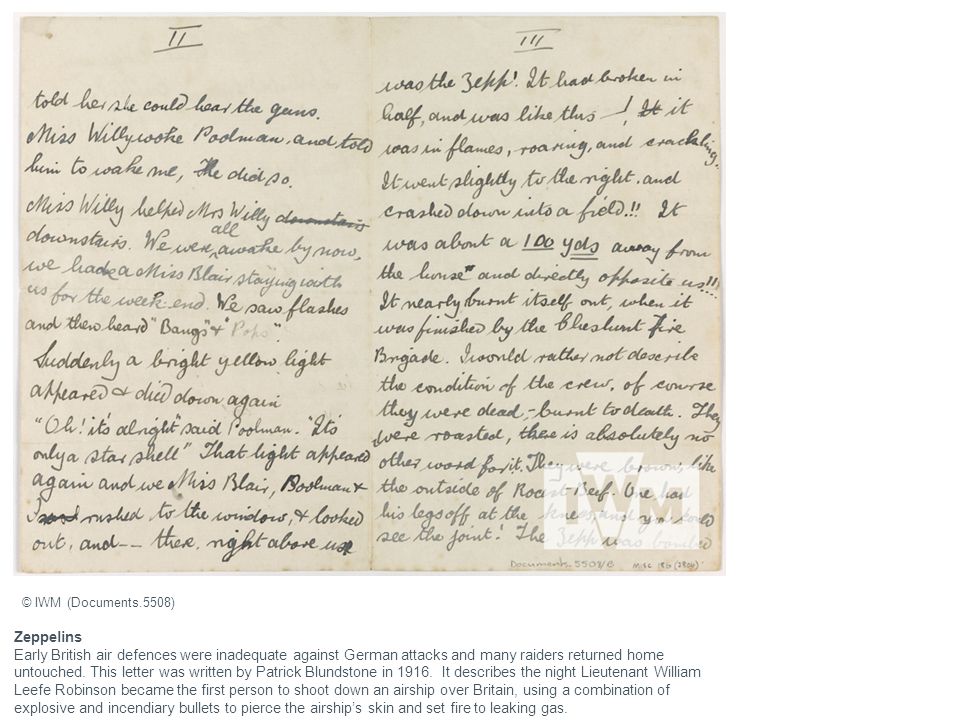 II
told her she could hear the guns.
Miss Willy woke Poolman, and told
him to wake me, He did so.
Miss Willy helped Mrs Willy downstairs
downstairs. We were all awake by now,
we had a Miss Blair staying with
us for the week-end. We saw flashes
and then heard "Bangs" & "Pops".
Suddenly a bright yellow light
appeared & died down again
"Oh! it's alright" said Poolman. "It's
only a star shell" That light appeared
again and we Miss Blair, Poolman &
I rushed to the window, & looked
out, and -- there, right above us
III
was the Zepp! It had broken in
half, and was like this it
was in flames, roaring, and crackling.
It went slightly to the right, and
crashed down into a field!!! It
was about a 100 yds away from
the house and directly opposite us!!!
It nearly burnt itself out, when it
was finished by the Cheshunt Fire
Brigade. I would rather not describe
the condition of the crew, of course
they were dead, - burnt to death. They
were roasted, there is absolutely no
other word for it. They were brown, like
the outside of Roast Beef. One had
his legs off at the knees, and you could
see the joint! The Zepp was bombed
IWM
Documents.5508/B Misc 186 (2804)
© IWM (Documents.5508)
Zeppelins
Early British air defences were inadequate against German attacks and many raiders returned home
untouched. This letter was written by Patrick Blundstone in 1916. It describes the night Lieutenant William
Leefe Robinson became the first person to shoot down an airship over Britain, using a combination of
explosive and incendiary bullets to pierce the airship's skin and set fire to leaking gas.